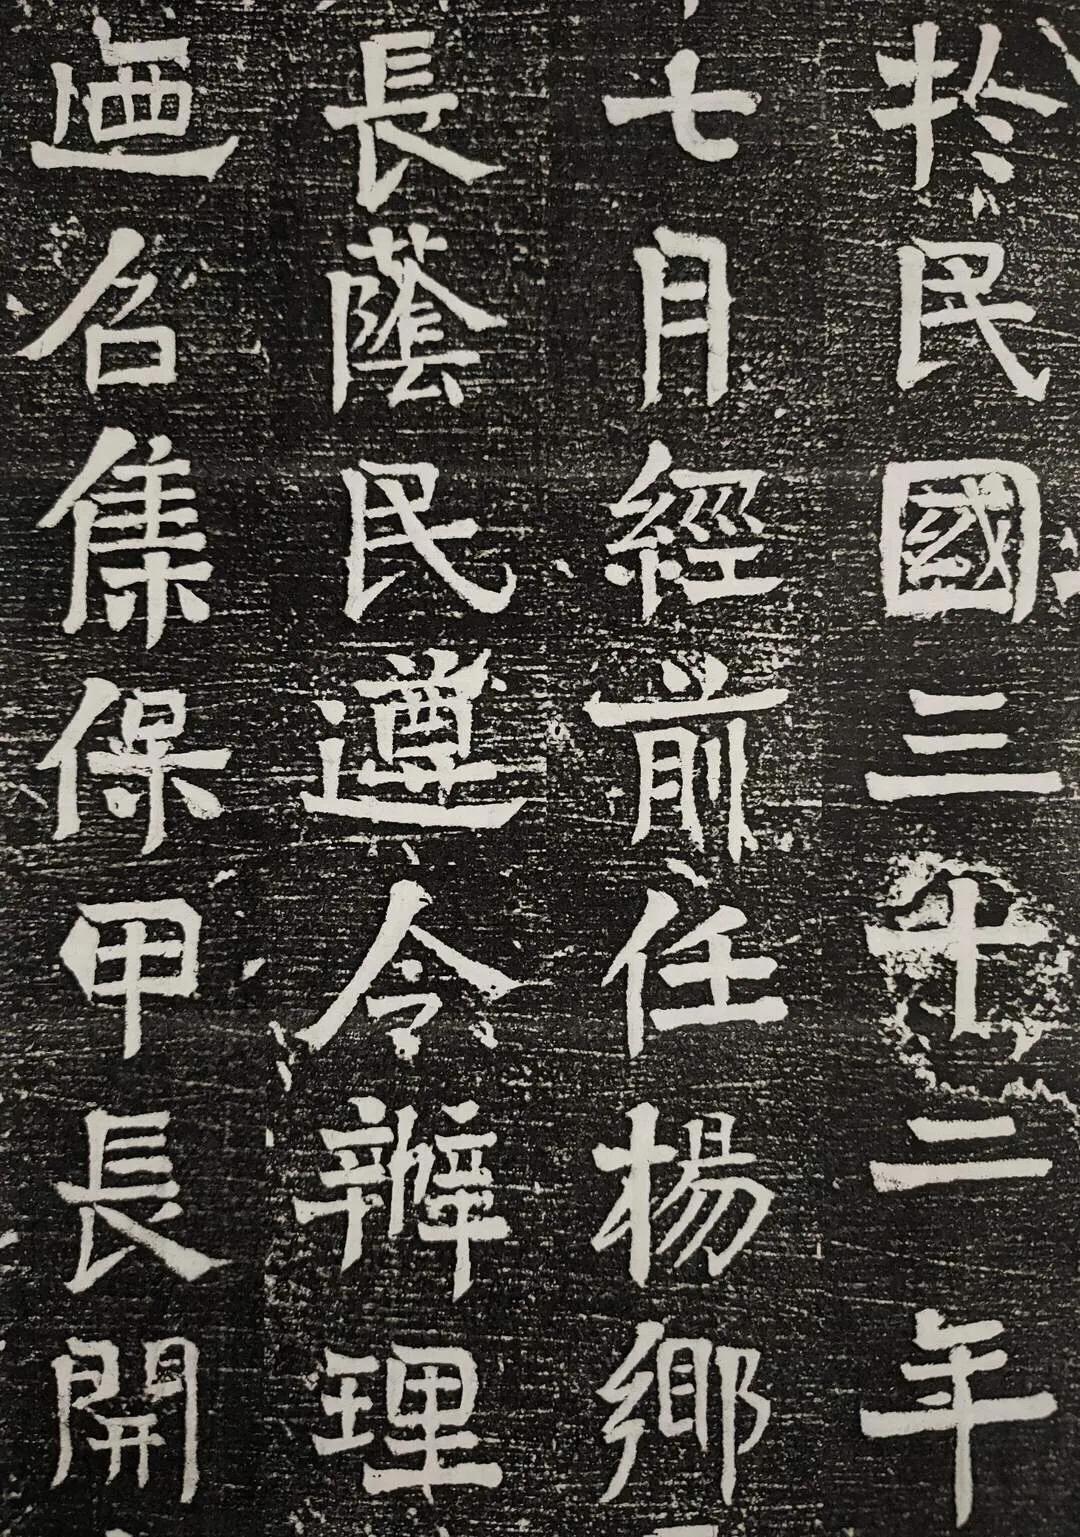 於民國三十二年
七月經前任楊鄉
長蔭民遵令辦理
迺召集保甲長開